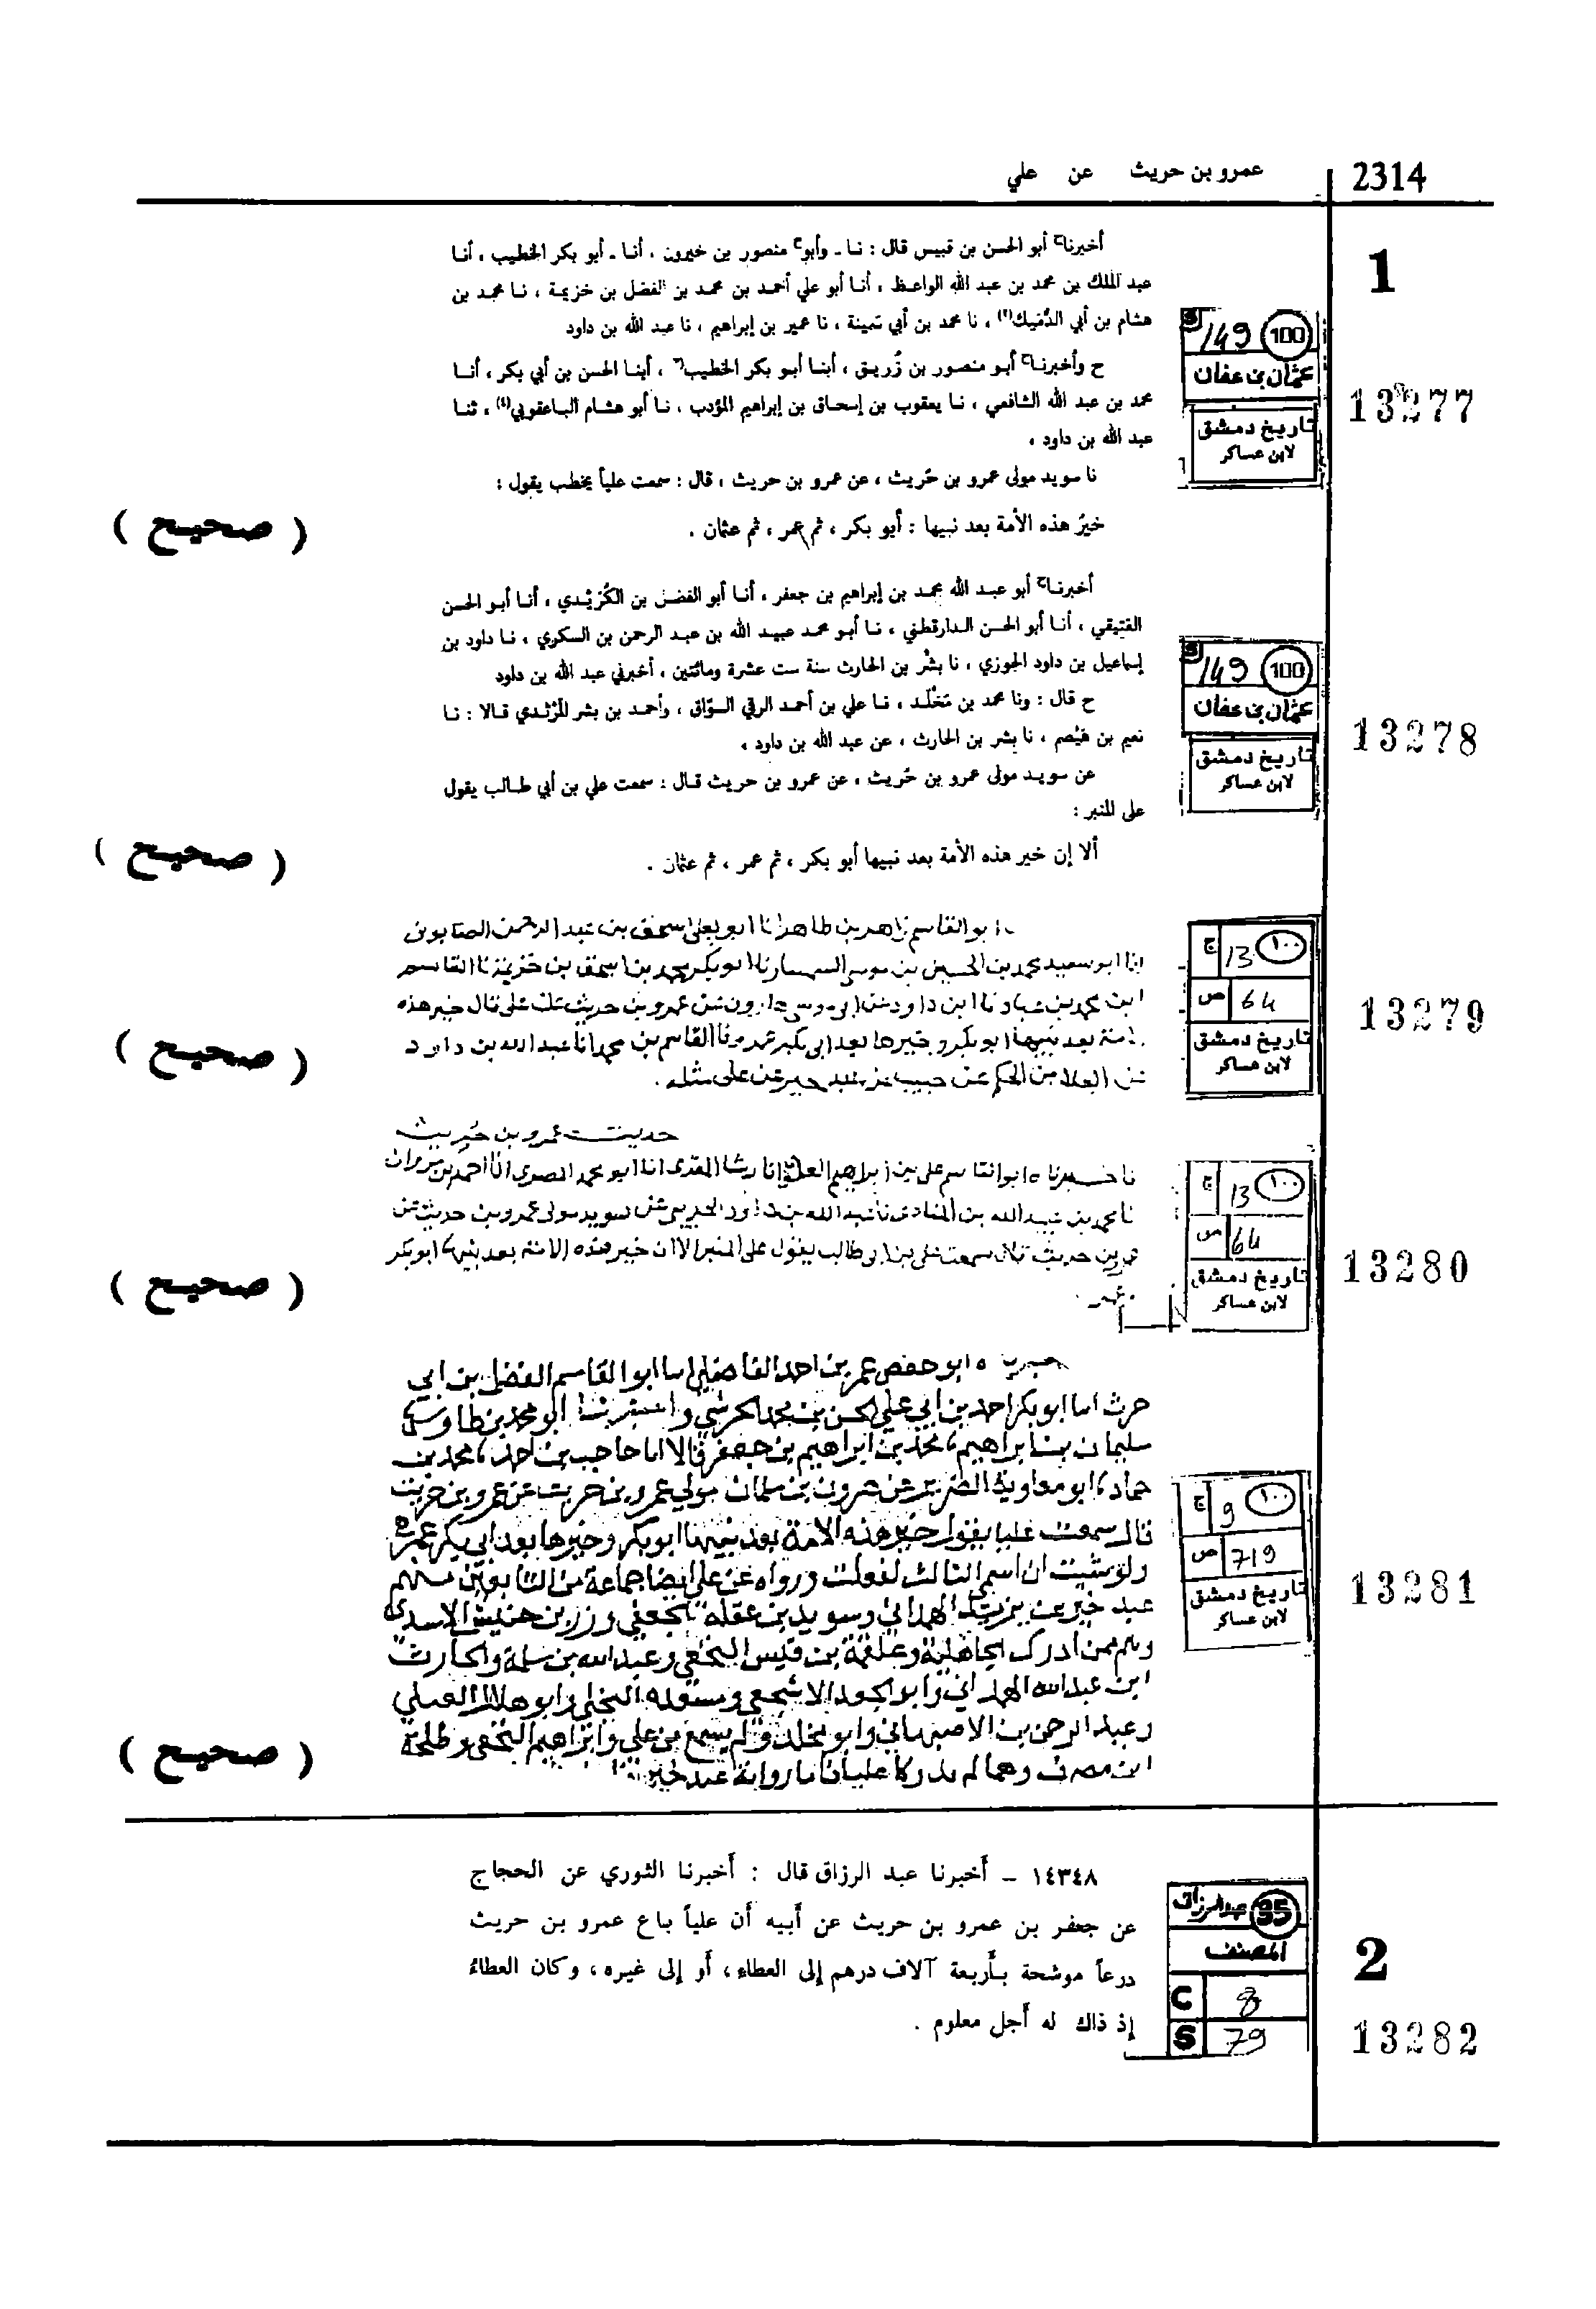 2314
عمرو بن حريث عن علي
1
أخبرنا أبو الحسن بن قبيس قال : نا ـ وأبو منصور بن خيرون ، أنا ـ أبو بكر الخطيب ، أنا
عبد الملك بن محمد بن عبد الله الواعظ ، أنا أبو علي أحمد بن محمد بن الفضل بن خزيمة ، نا محمد بن
هشام بن أبي الدُّمَيك ، نا محمد بن أبي سمينة ، نا عمير بن إبراهيم ، نا عبد الله بن داود
ح وأخبرنا أبو منصور بن زُريق ، أبنا أبو بكر الخطيب ، أبنا الحسن بن أبي بكر ، أنا
محمد بن عبد الله الشافعي ، نا يعقوب بن إسحاق بن إبراهيم المؤدب ، نا أبو هشام الباعقوبي ، ثنا
عبد الله بن داود ،
نا سويد مولى عمرو بن حُريث ، عن عمرو بن حريث ، قال : سمعت علياً يخطب يقول :
خيرُ هذه الأمة بعد نبيها : أبو بكر ، ثم عمر ، ثم عثمان .
( صحيح )
149 100
عثمان بن عفان
تاريخ دمشق
لابن عساكر
13277
أخبرنا أبو عبد الله محمد بن إبراهيم بن جعفر ، أنا أبو الفضل بن الكُرَيْدي ، أنا أبو الحسن
العتيقي ، أنا أبو الحسن الدارقطني ، نا أبو محمد عبيد الله بن عبد الرحمن بن السكوي ، نا داود بن
إسماعيل بن داود الجوزي ، نا بشْر بن الحارث سنة ست عشرة ومائتين ، أخبرني عبد الله بن داود
ح قال : ونا محمد بن مَخْلَد ، نا علي بن أحمد الرقي السوّاق ، وأحمد بن بشر المَرْثدي قالا : نا
نعيم بن هَيْصم ، نا بشر بن الحارث ، عن عبد الله بن داود ،
عن سويد مولى عمرو بن حُريث ، عن عمرو بن حريث قال : سمعت علي بن أبي طالب يقول
على المنبر :
ألا إن خير هذه الأمة بعد نبيها أبو بكر ، ثم عمر ، ثم عثمان .
( صحيح )
149 100
عثمان بن عفان
تاريخ دمشق
لابن عساكر
13278
ابو القاسم زاهر بن طاهر انا ابو يعلى اسحق بن عبد الرحمن الصابوني
انا ابو سعيد محمد بن الحسين بن موسى السمسار نا ابو بكر محمد بن اسحق بن خزيمة نا القاسم
ابن محمد بن عباد نا ابن داود عن ابو موسى هارون عن عمرو بن حريث عن علي قال خير هذه
الامة بعد نبيها ابو بكر وخيرها بعد ابي بكر عمر ونا القاسم بن محمد انا عبد الله بن داود
عن العلاء بن الحكم عن حبيب عن عبد خير عن علي مثله .
( صحيح )
١٠٠ 13 ج
64 ص
تاريخ دمشق
لابن عساكر
13279
حديث عمرو بن حُرَيث
ابو القاسم علي بن ابراهيم العلوي انا رشا المقري انا ابو محمد المصري انا احمد بن مروان
نا محمد بن عبيد الله بن المنادي نا عبد الله بن داود الخريبي عن سويد مولى عمرو بن حريث عن
عمرو بن حريث قال سمعت علي بن ابي طالب يقول على المنبر الا ان خير هذه الامة بعد نبيها ابو بكر
عمر .
( صحيح )
١٠٠ 13 ج
64 ص
تاريخ دمشق
لابن عساكر
13280
ابو حفص عمر بن احمد انا ابو القاسم الفضل بن ابي
حرث انا ابو بكر احمد بن ابي علي الحسن بن محمد الحرشي ابو محمد بن طاوس
سليمان بن ابراهيم محمد بن ابراهيم بن جعفر قالا انا حاجب بن احمد محمد بن
حماد ابو معاوية الضرير عن هرون بن سلمان مولي عمرو بن حريث عن عمرو بن حريث
قال سمعت عليا يقول خير هذه الامة بعد نبيها ابو بكر وخيرها بعد ابي بكر عمر
ولو شئت ان اسمي الثالث لفعلت ورواه عن علي ايضا جماعة من التابعين منهم
عبد خير بن يزيد الهمداني وسويد بن غفلة الجعفي وزر بن حبيش الاسدي
وهم ممن ادرك الجاهلية وعلقمة بن قيس النخعي وعبد الله بن سلمة والحارث
ابن عبد الله الهمداني وابو الجعد الاشجعي وابو هلال العكلي
وعبد الرحمن بن الاصبهاني وابو مخلد ولم يسمع من علي وابراهيم النخعي وطلحة
ابن مصرف وهما لم يدركا عليا فاما رواية عبد خير
( صحيح )
١٠٠ 9 ج
719 ص
تاريخ دمشق
لابن عساكر
13281
2
١٤٣٤٨ ـ أخبرنا عبد الرزاق قال : أخبرنا الثوري عن الحجاج
عن جعفر بن عمرو بن حريث عن أبيه أن علياً باع عمرو بن حريث
درعاً موشحة بأربعة آلاف درهم إلى العطاء ، أو إلى غيره ، وكان العطاءُ
إذ ذاك له أجل معلوم .
عبد الرزاق 35
المصنف
C 8
S 79
13282